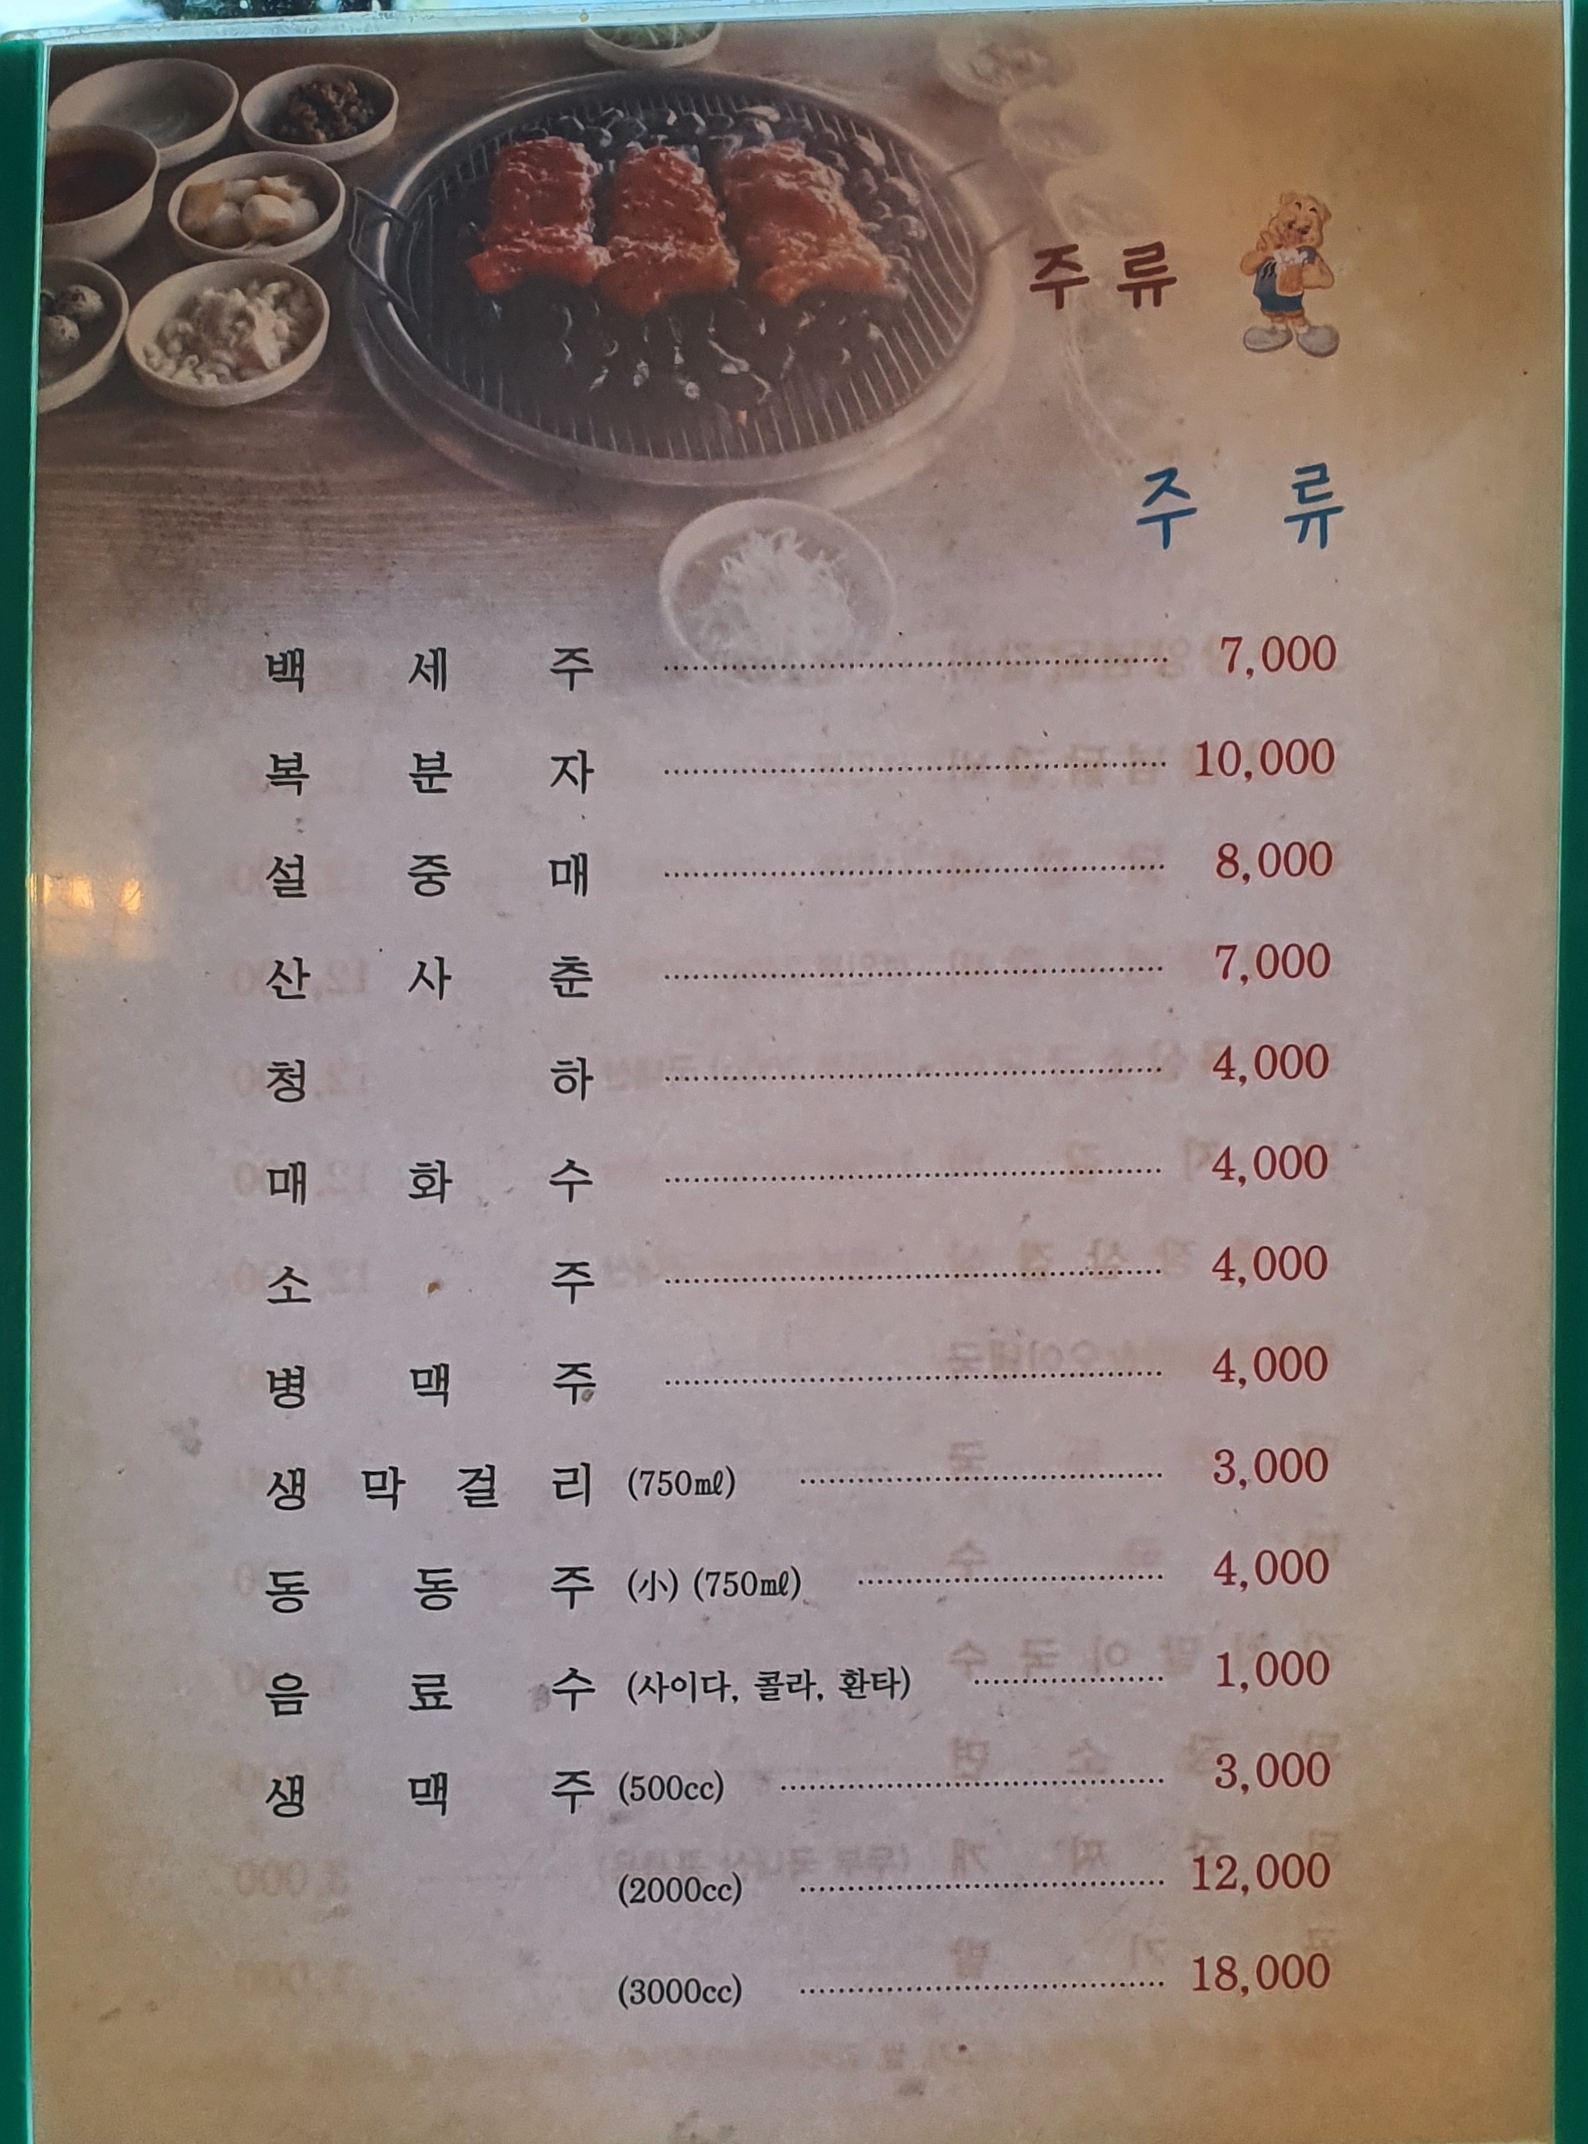 주류
주 류
백 세 주 7,000
복 분 자 10,000
설 중 매 8,000
산 사 춘 7,000
청 하 4,000
매 화 수 4,000
소 주 4,000
병 맥 주 4,000
생 막 걸 리 (750㎖) 3,000
동 동 주 (小) (750㎖) 4,000
음 료 수 (사이다, 콜라, 환타) 1,000
생 맥 주 (500cc) 3,000
(2000cc) 12,000
(3000cc) 18,000